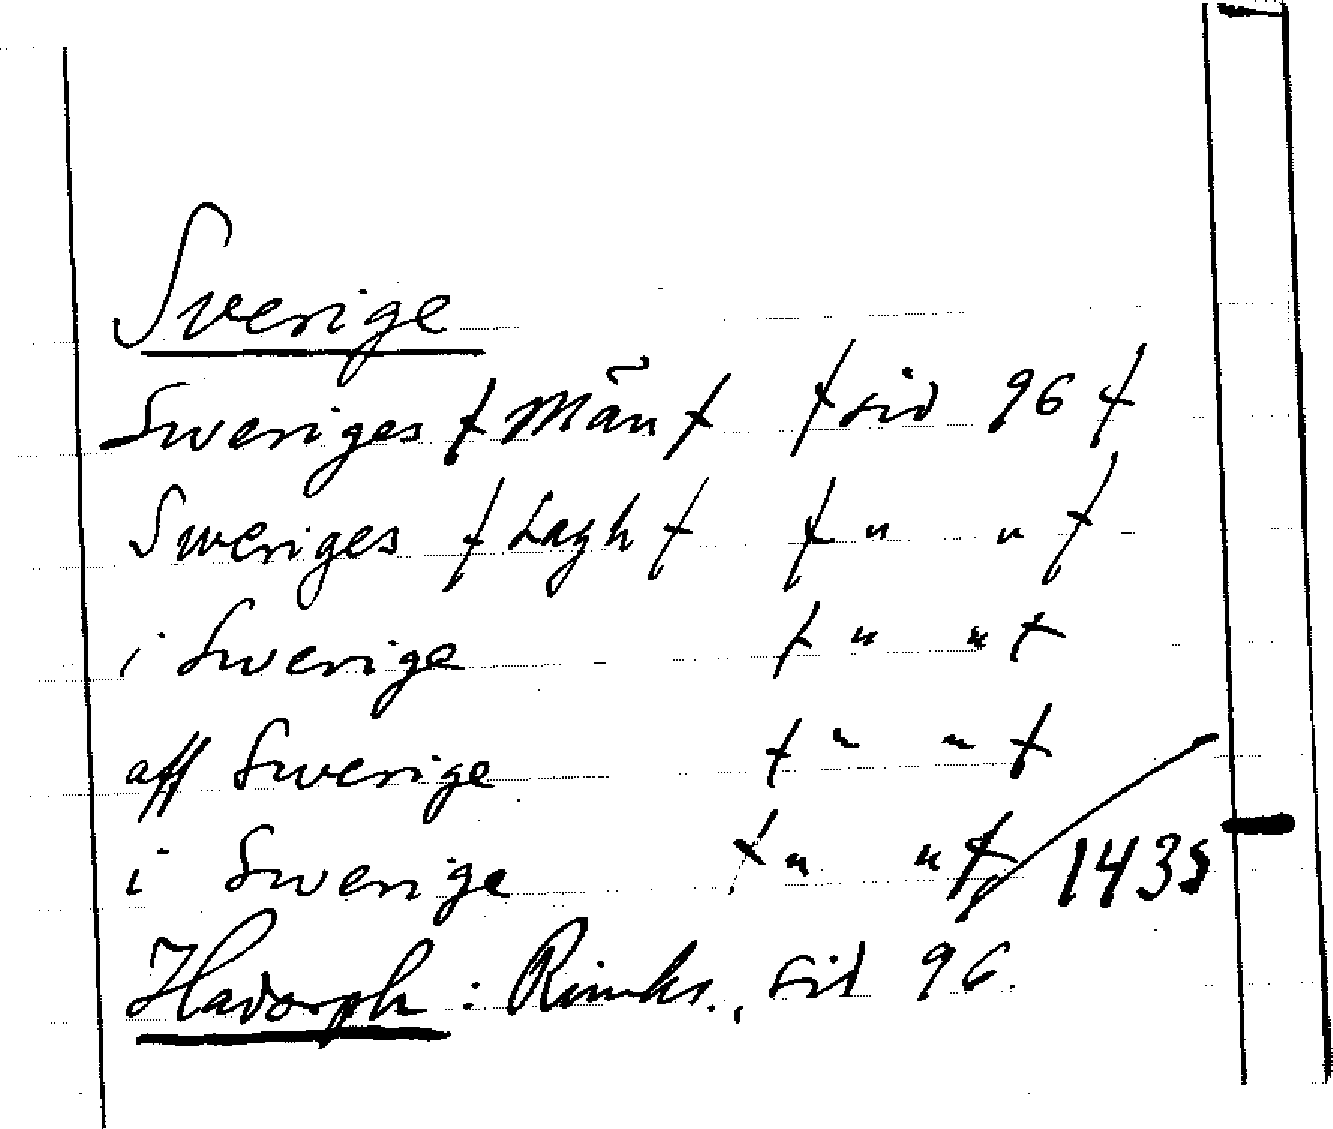 Sverige
Sweriges ƚ Män ƚ ƚ sid 96 ƚ
Sweriges ƚ Lagh ƚ ƚ " " ƚ
i Swerige ƚ " " ƚ
aff Swerige ƚ " " ƚ
i Swerige ƚ " " ƚ 1435
Hadorph: Rimkr., sid 96.